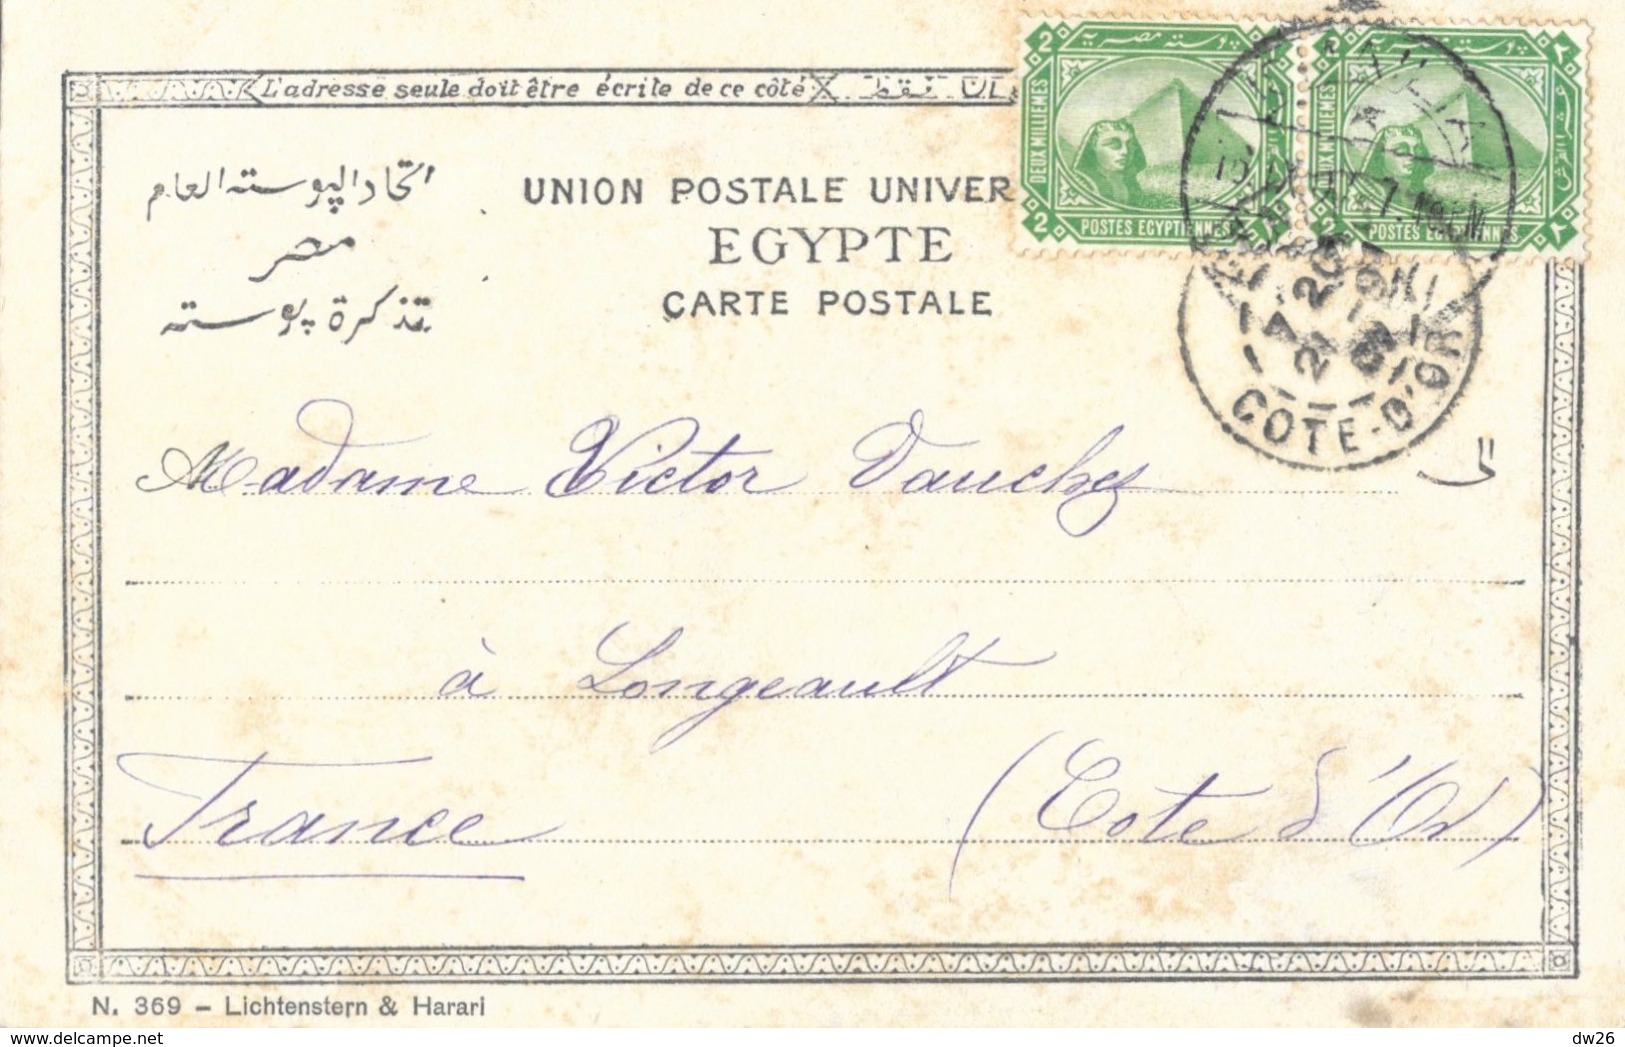 L'adresse seule doit être écrite de ce côté
اتحاد البوسته العام
مصر
تذكرة بوسته
UNION POSTALE UNIVER
EGYPTE
CARTE POSTALE
2 بوسته مصرية ٢
DEUX MILLIEMES
2 POSTES EGYPTIENNES ٢
2 بوسته مصرية ٢
DEUX MILLIEMES
2 POSTES EGYPTIENNES ٢
COTE-D'OR
Madame Victor Vauchez
à Longeault
France (Cote d'Or)
N. 369 – Lichtenstern & Harari
delcampe.net
dw26